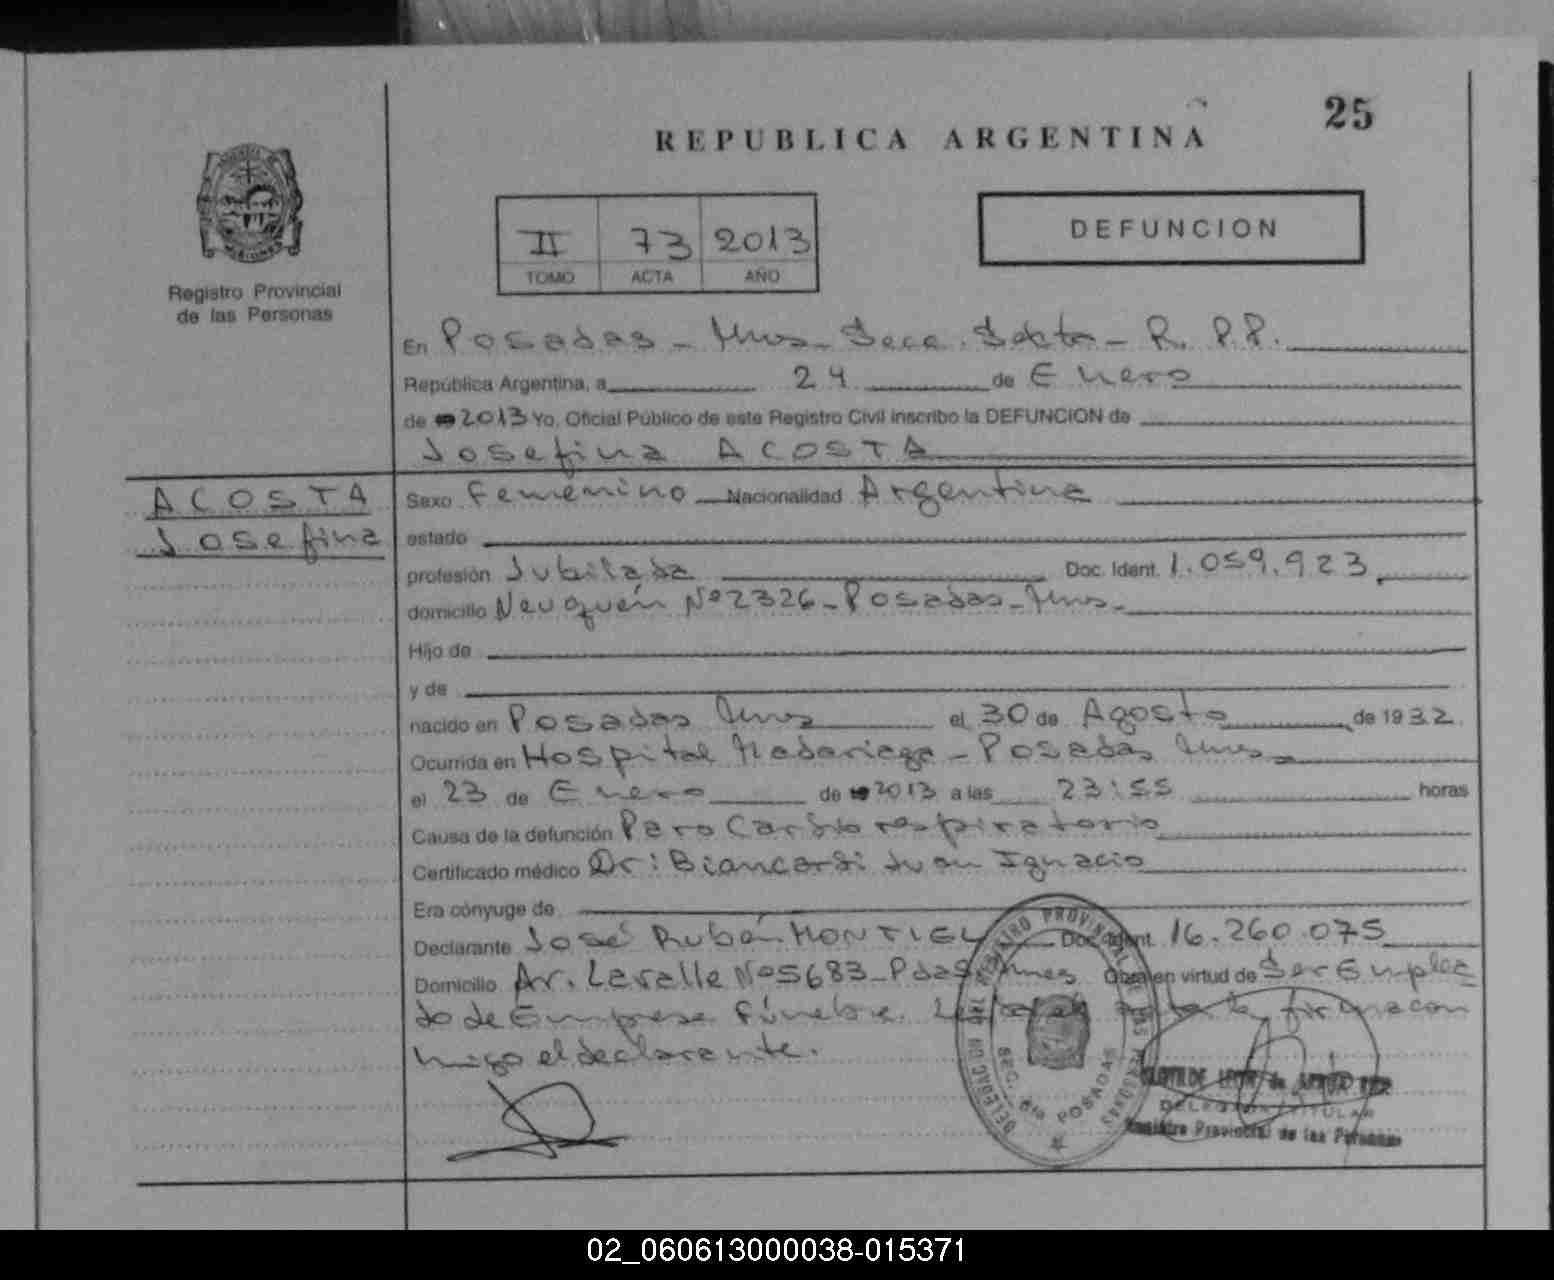 25
REPUBLICA ARGENTINA
II 73 2013
TOMO ACTA AÑO
DEFUNCION
Registro Provincial
de las Personas
En Posadas - Mnes - Secc. Sexta - R. P. P.
República Argentina, a 24 de Enero
de 2013 Yo, Oficial Público de este Registro Civil inscribo la DEFUNCION de
Josefina ACOSTA
ACOSTA
Josefina
Sexo Femenino Nacionalidad Argentina
estado
profesión Jubilada Doc. Ident. 1.059.923
domicilio Neuquén Nº 2326 - Posadas - Mnes -
Hijo de
y de
nacido en Posadas Mnes el 30 de Agosto de 1932
Ocurrida en Hospital Madariaga - Posadas Mnes
el 23 de Enero de 2013 a las 23:55 horas
Causa de la defunción Paro Cardio respiratorio
Certificado médico Dr: Biancardi Juan Ignacio
Era cónyuge de
Declarante José Rubén MONTIEL Doc. Ident. 16.260.075
Domicilio Av. Lavalle Nº 5683 - Pdas Mnes Obra en virtud de Ser Emplea
do de Empresa Fúnebre. Leída el acta la firma con
migo el declarante.
DELEGACION DEL REGISTRO PROVINCIAL DE LAS PERSONAS
SEC. 6ta POSADAS
DELEGADA TITULAR
Registro Provincial de las Personas
02_060613000038-015371